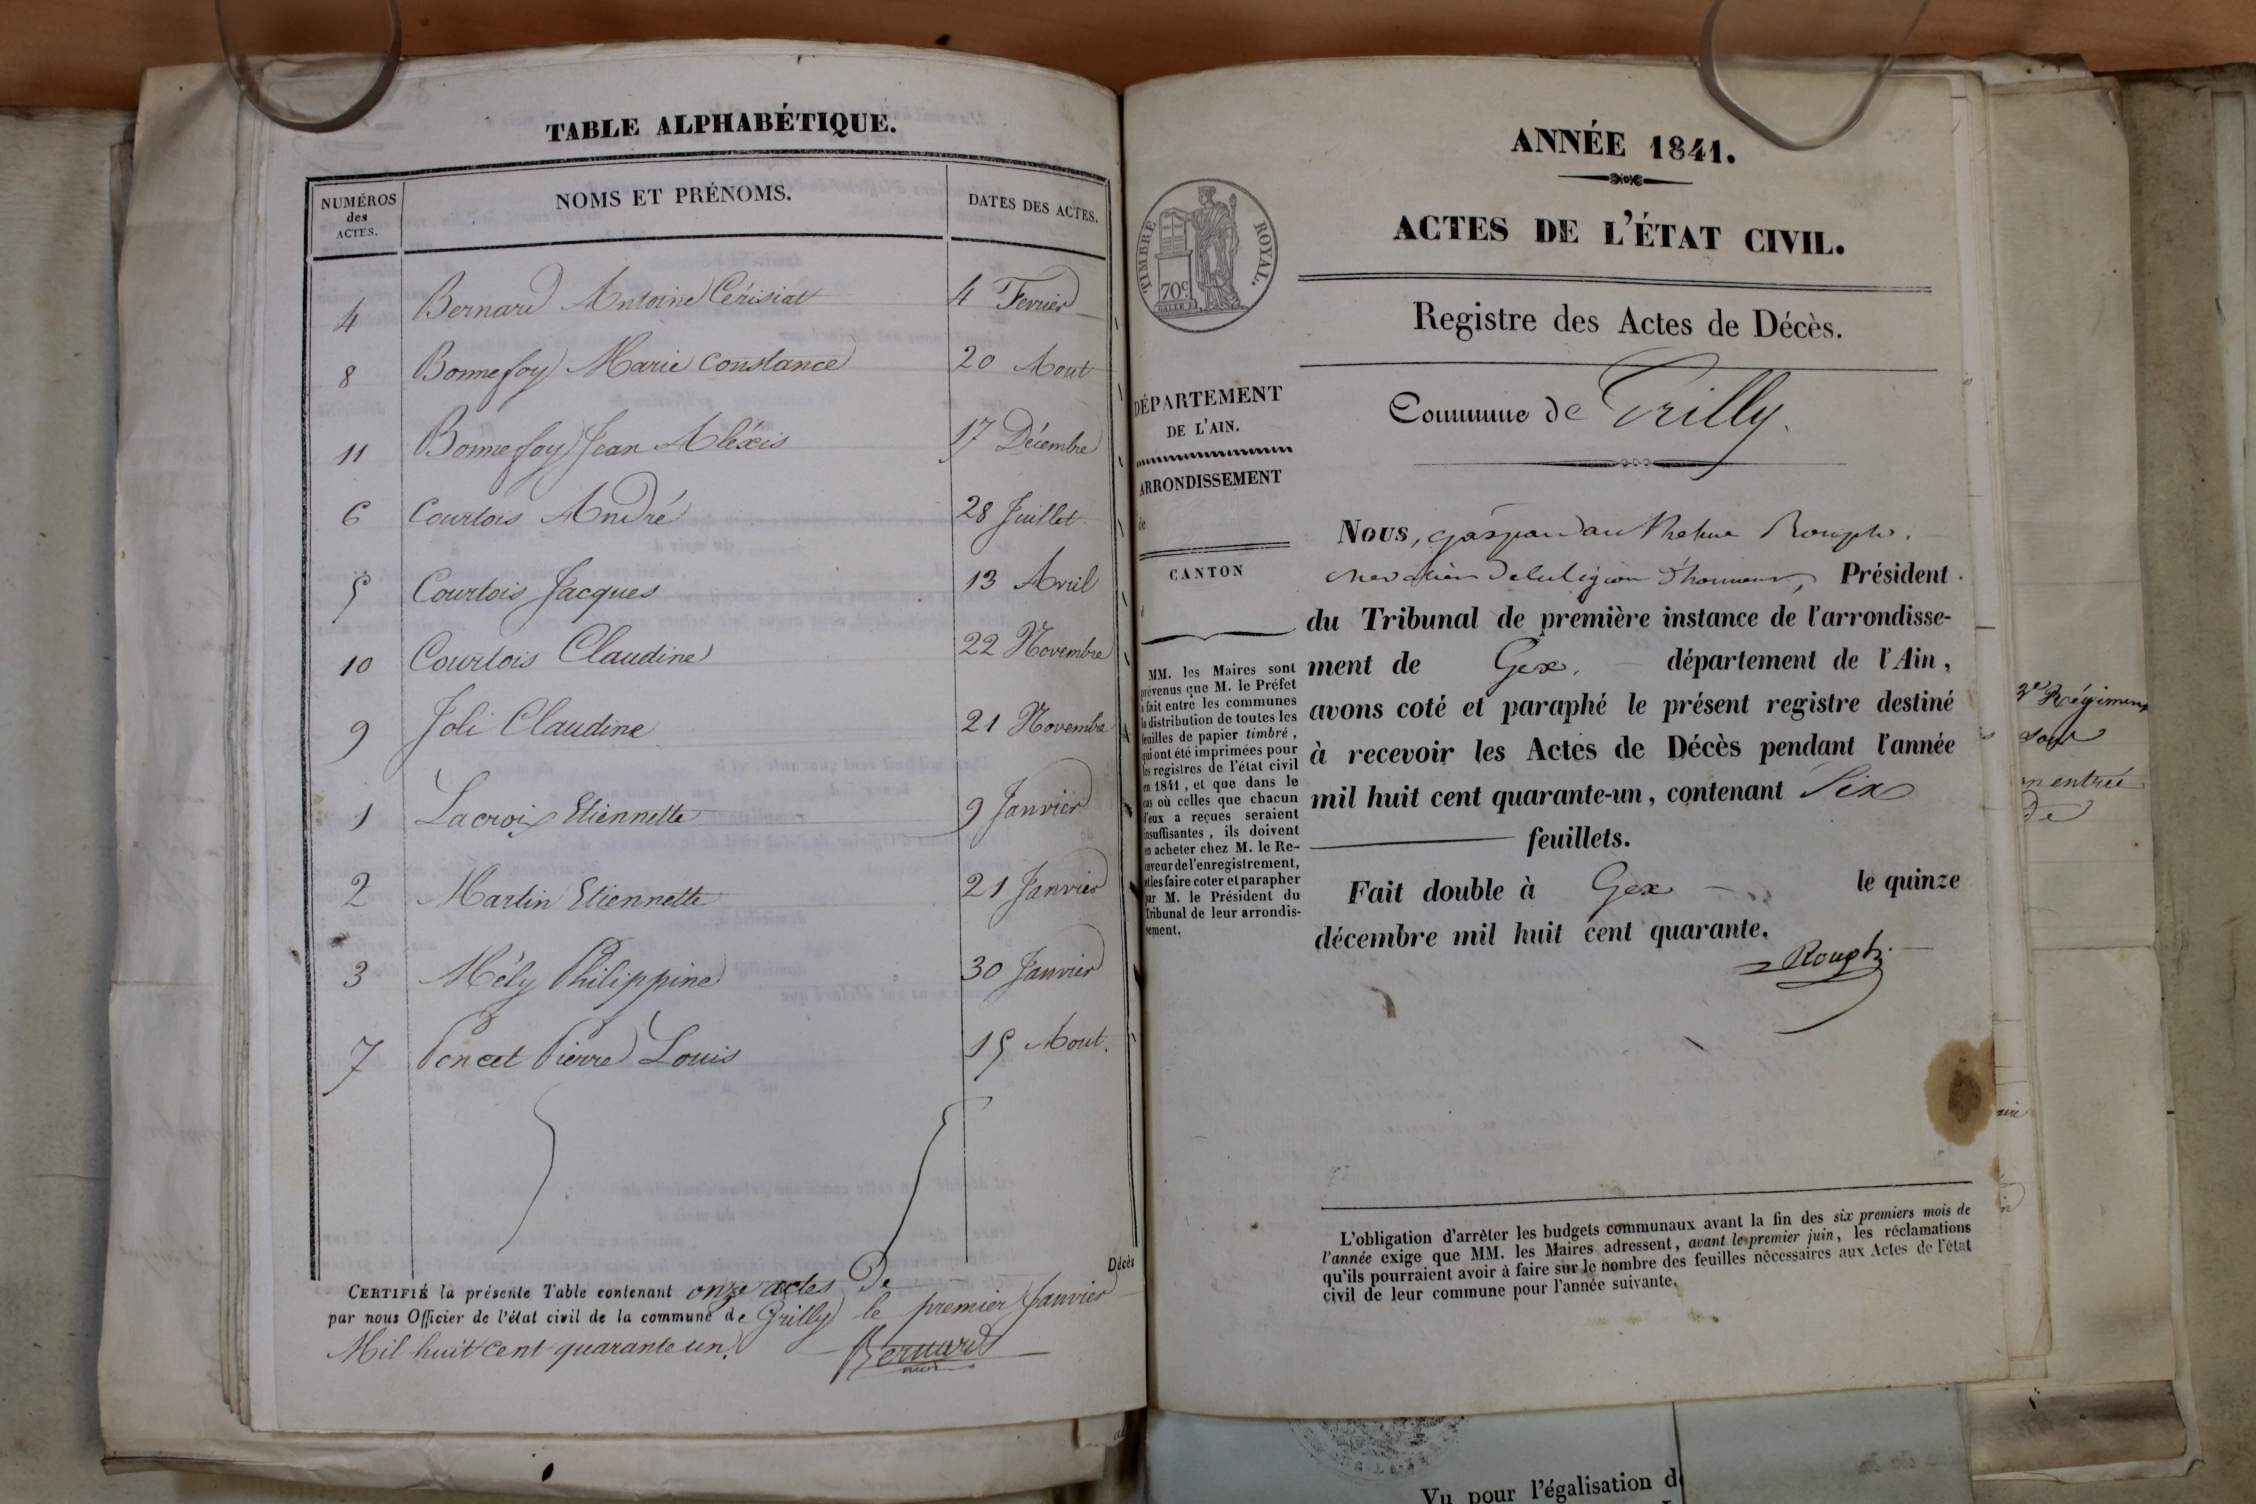 TABLE ALPHABÉTIQUE.
NUMÉROS
des
ACTES.
NOMS ET PRÉNOMS.
DATES DES ACTES.
4 Bernard Antoine Cérisiat 4 Fevrier
8 Bonnefoy Marie Constance 20 Aout
11 Bonnefoy Jean Aléxis 17 Décembre
6 Courtois André 28 Juillet
5 Courtois Jacques 13 Avril
10 Courtois Claudine 22 Novembre
9 Joli Claudine 21 Novembre
1 Lacroix Etiennette 9 Janvier
2 Martin Etiennette 21 Janvier
3 Mély Philippine 30 Janvier
7 Poncet Pierre Louis 15 Aout.
Décès
CERTIFIÉ la présente Table contenant onze actes De
par nous Officier de l'état civil de la commune de Grilly le premier Janvier
Mil huit cent quarante un.
Bernard
ANNÉE 1841.
ACTES DE L'ÉTAT CIVIL.
TIMBRE ROYAL.
70c
Registre des Actes de Décès.
Commune de Grilly.
DÉPARTEMENT
DE L'AIN.
ARRONDISSEMENT
de
CANTON
MM. les Maires sont
prévenus que M. le Préfet
a fait entre les communes
la distribution de toutes les
feuilles de papier timbré,
qui ont été imprimées pour
les registres de l'état civil
en 1841, et que dans le
cas où celles que chacun
d'eux a reçues seraient
insuffisantes, ils doivent
en acheter chez M. le Re-
ceveur de l'enregistrement,
et les faire coter et parapher
par M. le Président du
Tribunal de leur arrondis-
sement.
Nous, gaspard
chevalier de la légion d'honneur, Président
du Tribunal de première instance de l'arrondisse-
ment de Gex. département de l'Ain,
avons coté et paraphé le présent registre destiné
à recevoir les Actes de Décès pendant l'année
mil huit cent quarante-un, contenant Six
feuillets.
Fait double à Gex le quinze
décembre mil huit cent quarante.
L'obligation d'arrêter les budgets communaux avant la fin des six premiers mois de
l'année exige que MM. les Maires adressent, avant le premier juin, les réclamations
qu'ils pourraient avoir à faire sur le nombre des feuilles nécessaires aux Actes de l'état
civil de leur commune pour l'année suivante.
Régiment
entrée
De
Vu pour l'égalisation d